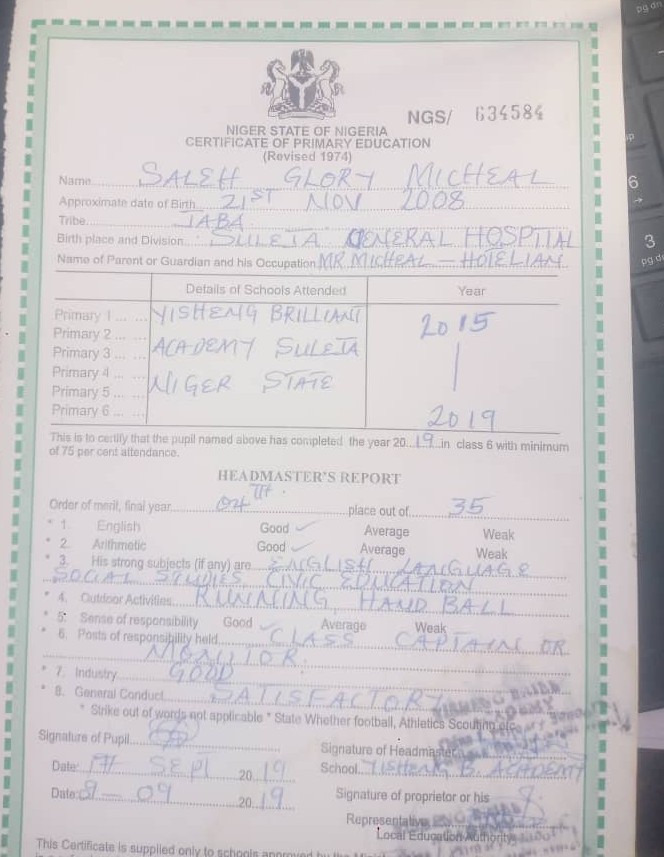 NGS/ 634584
NIGER STATE OF NIGERIA
CERTIFICATE OF PRIMARY EDUCATION
(Revised 1974)
Name SALEH GLORY MICHEAL
Approximate date of Birth 21ST NOV 2008
Tribe JABA
Birth place and Division SULEJA GENERAL HOSPITAL
Name of Parent or Guardian and his Occupation MR MICHEAL – HOTELIAN
Details of Schools Attended Year
Primary 1 YISHENG BRILLIANT 2015
Primary 2
Primary 3 ACADEMY SULEJA
Primary 4
Primary 5 NIGER STATE
Primary 6 2019
This is to certify that the pupil named above has completed the year 2019 in class 6 with minimum
of 75 per cent attendance.
HEADMASTER'S REPORT
Order of merit, final year 04TH place out of 35
* 1. English Good ✓ Average Weak
* 2. Arithmetic Good ✓ Average Weak
* 3. His strong subjects (if any) are ENGLISH LANGUAGE
SOCIAL STUDIES, CIVIC EDUCATION
* 4. Outdoor Activities RUNNING, HAND BALL
* 5. Sense of responsibility Good ✓ Average Weak
* 6. Posts of responsibility held CLASS CAPTAIN OR
MONITOR
* 7. Industry GOOD
* 8. General Conduct SATISFACTORY
* Strike out of words not applicable * State Whether football, Athletics Scouting etc.
Signature of Pupil
Signature of Headmaster
Date: SEPT 2019
School YISHENG B. ACADEMY
Date: 9 – 09 2019
Signature of proprietor or his
Representative
Local Education Authority
This Certificate is supplied only to schools approved by the
pg dn
6
3